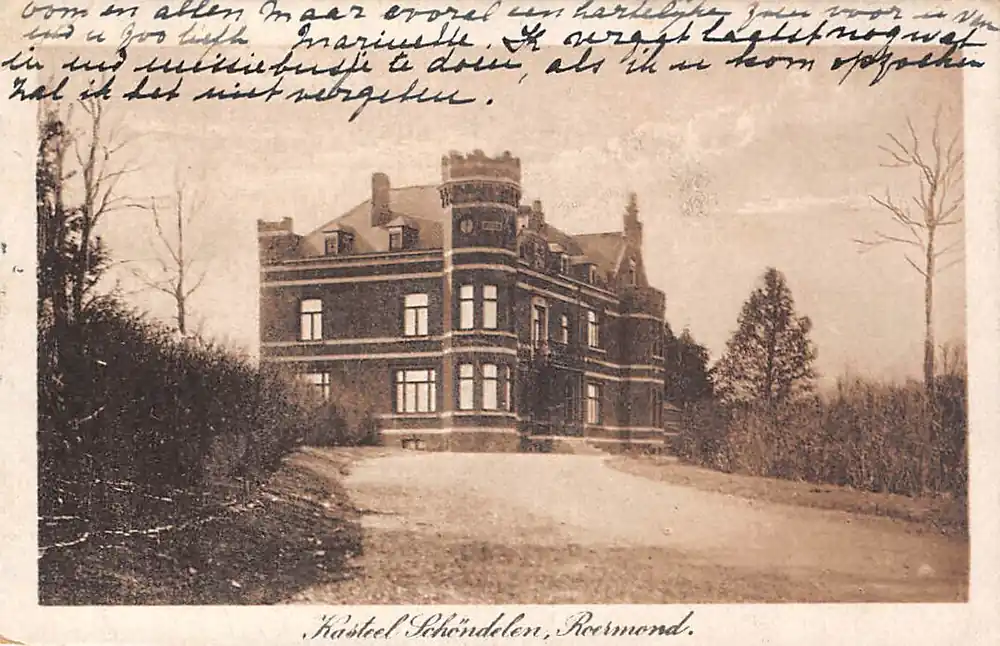 oom en allen Maar vooral een hartelijke zoen voor u van
uw u zoo liefh Marinette. Ik vergat laatst nog wat
in uw missiebusje te doen, als ik u kom opzoeken
zal ik het niet vergeten.
Kasteel Schöndelen, Roermond.